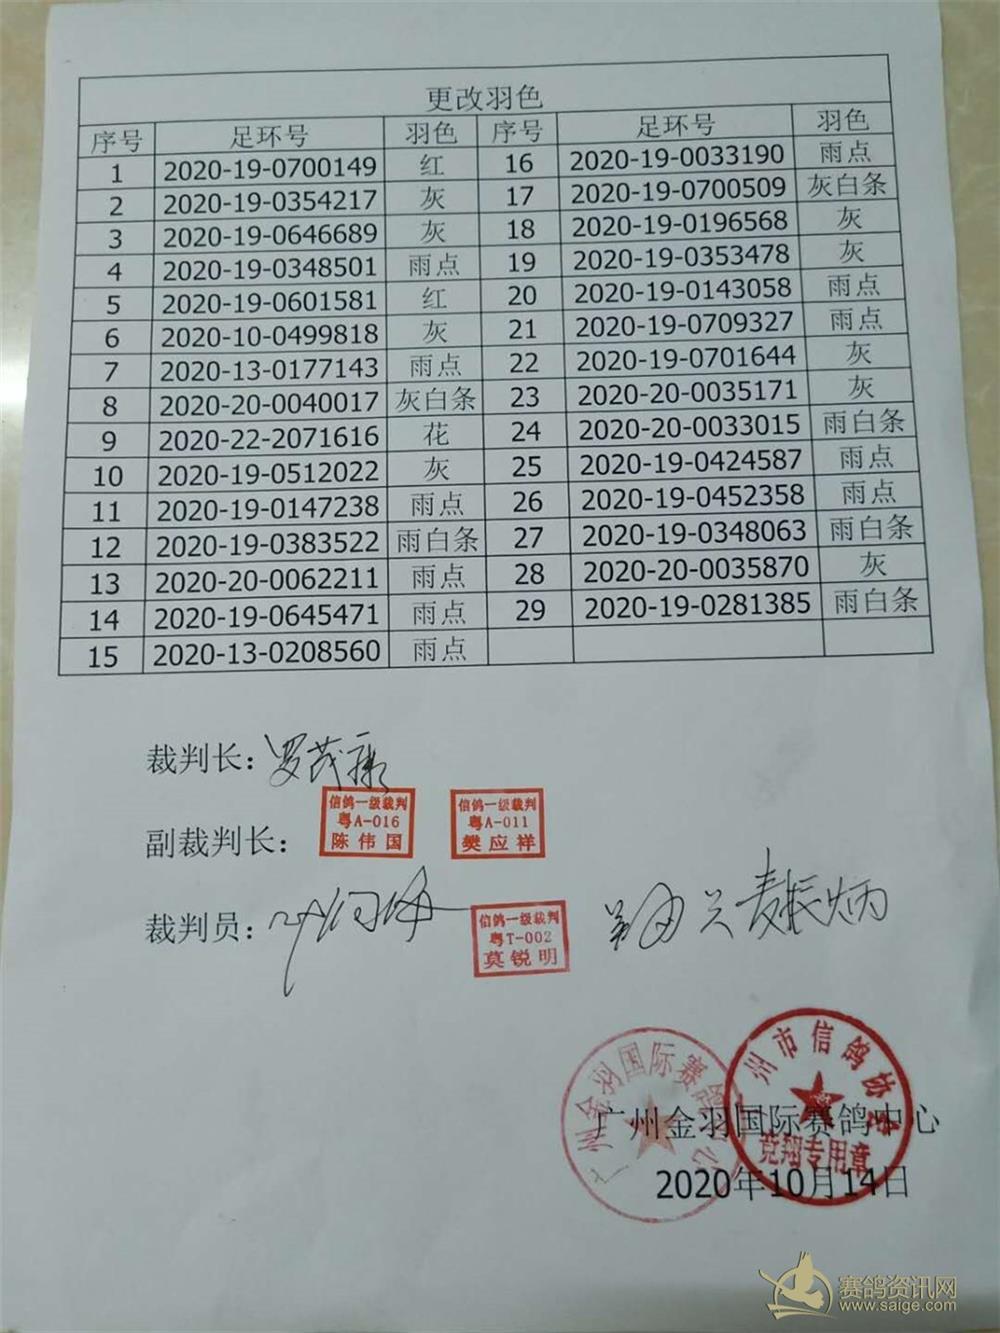 更改羽色
序号 足环号 羽色 序号 足环号 羽色
1 2020-19-0700149 红 16 2020-19-0033190 雨点
2 2020-19-0354217 灰 17 2020-19-0700509 灰白条
3 2020-19-0646689 灰 18 2020-19-0196568 灰
4 2020-19-0348501 雨点 19 2020-19-0353478 灰
5 2020-19-0601581 红 20 2020-19-0143058 雨点
6 2020-10-0499818 灰 21 2020-19-0709327 雨点
7 2020-13-0177143 雨点 22 2020-19-0701644 灰
8 2020-20-0040017 灰白条 23 2020-20-0035171 灰
9 2020-22-2071616 花 24 2020-20-0033015 雨白条
10 2020-19-0512022 灰 25 2020-19-0424587 雨点
11 2020-19-0147238 雨点 26 2020-19-0452358 雨点
12 2020-19-0383522 雨白条 27 2020-19-0348063 雨白条
13 2020-20-0062211 雨点 28 2020-20-0035870 灰
14 2020-19-0645471 雨点 29 2020-19-0281385 雨白条
15 2020-13-0208560 雨点
裁判长: 罗茂康
信鸽一级裁判
粤A-016
陈伟国
信鸽一级裁判
粤A-011
樊应祥
副裁判长:
裁判员:
信鸽一级裁判
粤T-002
莫锐明
麦振炳
广州金羽国际赛鸽中心
州市信鸽协会
竞翔专用章
广州金羽国际赛鸽中心
2020年10月14日
赛鸽资讯网
www.saige.com